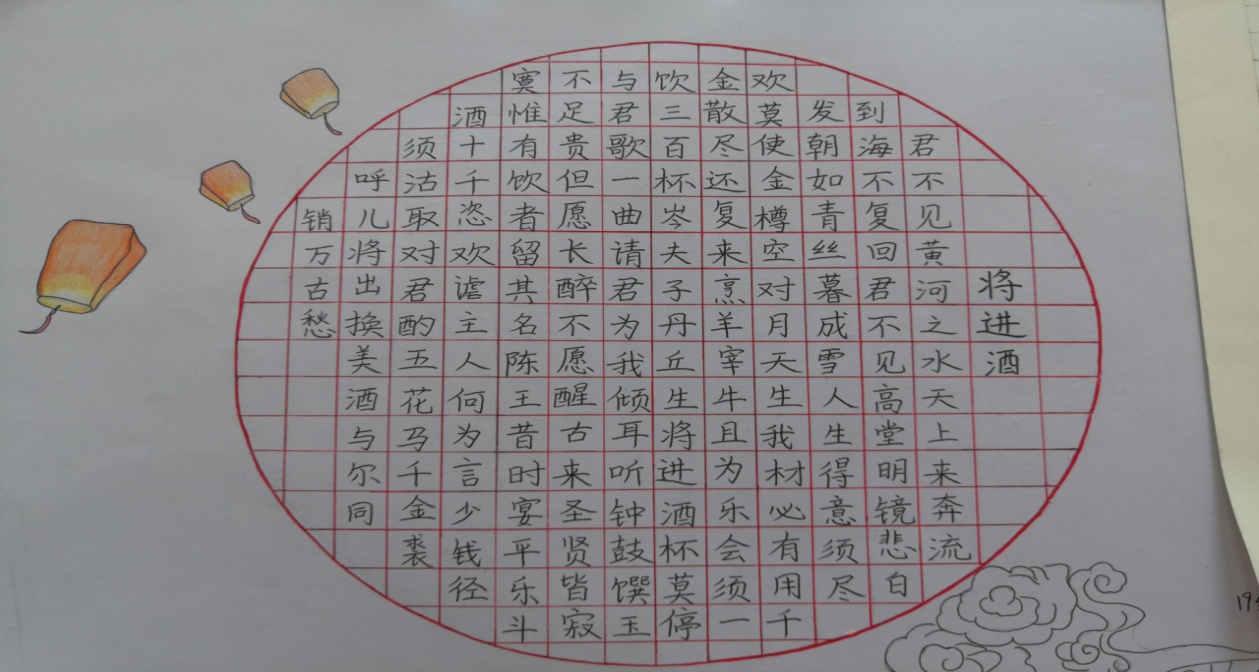 将进酒
君不见黄河之水天上来奔流
到海不复回君不见高堂明镜悲白
发朝如青丝暮成雪人生得意须尽
欢莫使金樽空对月天生我材必有用千
金散尽还复来烹羊宰牛且为乐会须一
饮三百杯岑夫子丹丘生将进酒杯莫停
与君歌一曲请君为我倾耳听钟鼓馔玉
不足贵但愿长醉不愿醒古来圣贤皆寂
寞惟有饮者留其名陈王昔时宴平乐斗
酒十千恣欢谑主人何为言少钱径
须沽取对君酌五花马千金裘
呼儿将出换美酒与尔同
销万古愁